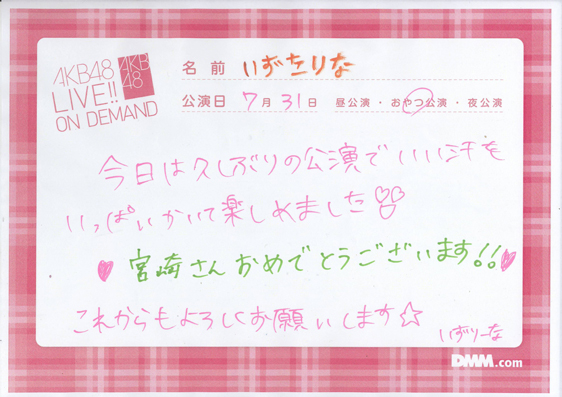 AKB48
LIVE!!
ON DEMAND
AKB
48
名前 いずたりな
公演日 7月31日 昼公演・おやつ公演・夜公演
今日は久しぶりの公演でいい汗を
いっぱいかいて楽しめました
宮崎さんおめでとうございます!!
これからもよろしくお願いします☆
いずりーな
DMM.com